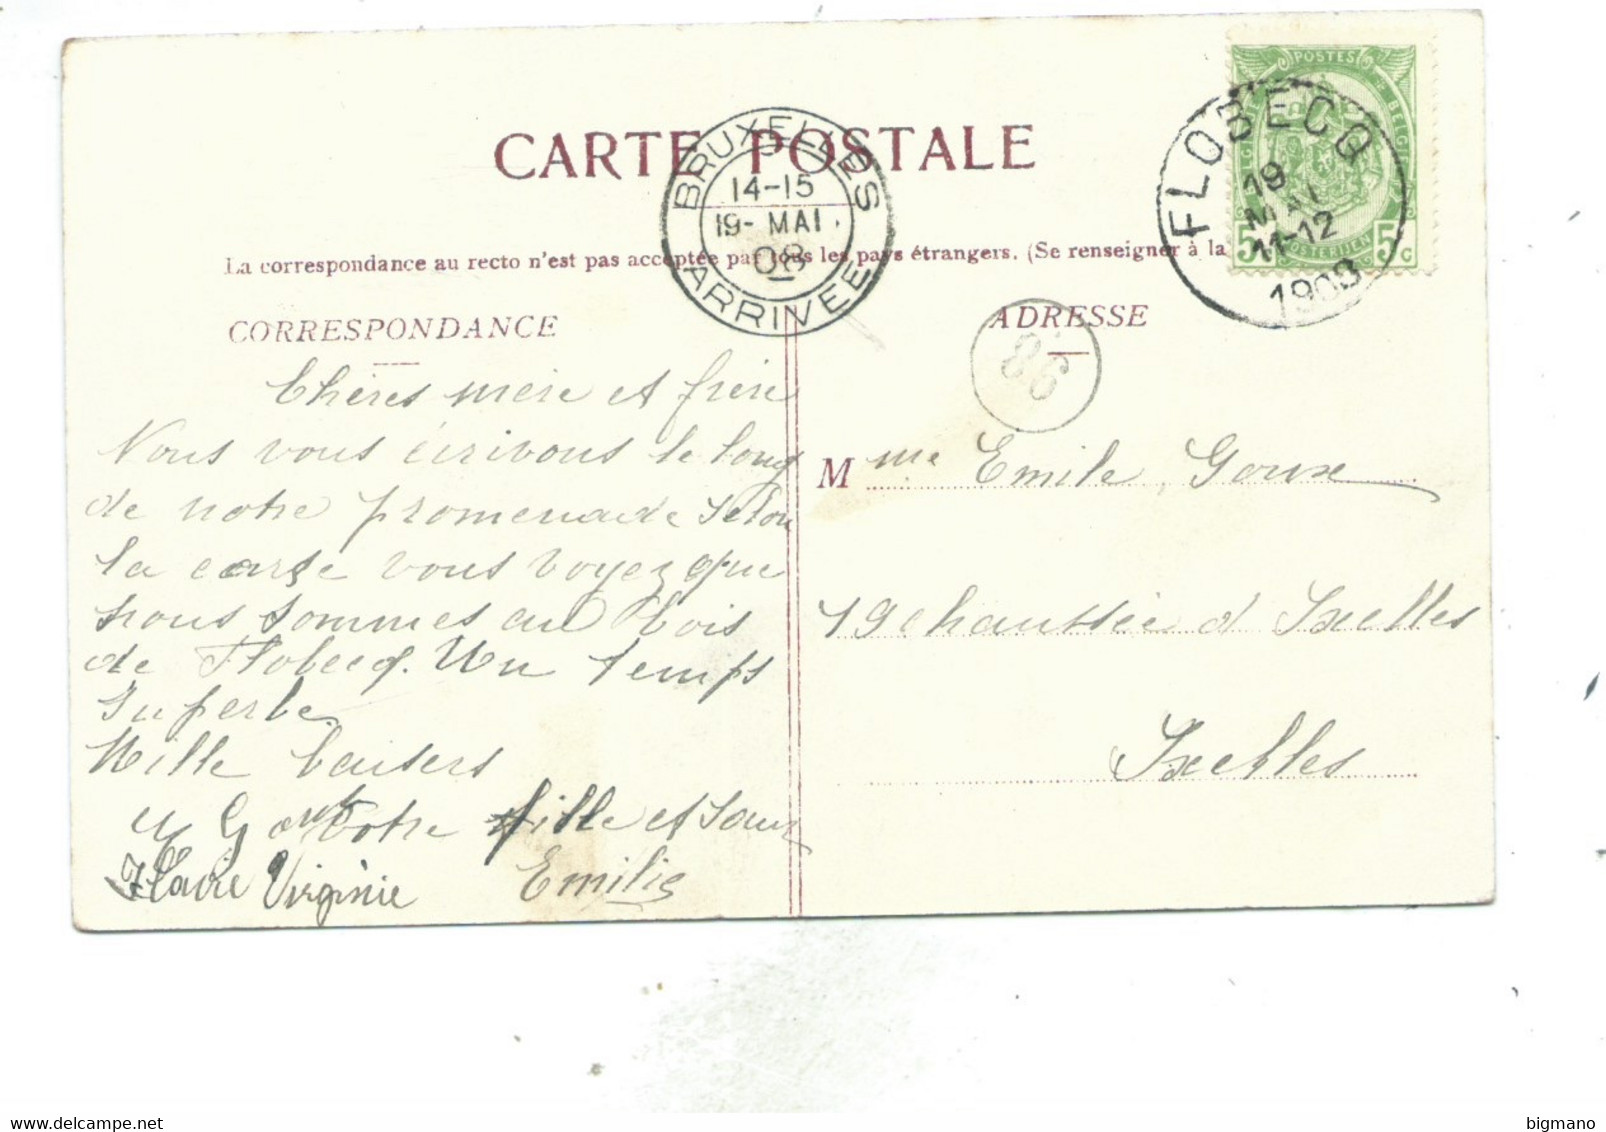 POSTES
BELGIË
5 c
FLOBECQ
19
MAI
11-12
1908
CARTE POSTALE
BRUXELLES
14-15
19- MAI
08
ARRIVÉE
La correspondance au recto n'est pas acceptée par tous les pays étrangers. (Se renseigner à la
CORRESPONDANCE
ADRESSE
Chères mère et frère
Nous vous écrivons le long
de notre promenade selon
la carte vous voyez que
nous sommes au bois
de Flobecq. Un temps
superbe
Mille baisers
Votre fille et soeur
Flavie Virginie Emilie
Mme Emile Goux
79 chaussée d Ixelles
Ixelles
bigmano